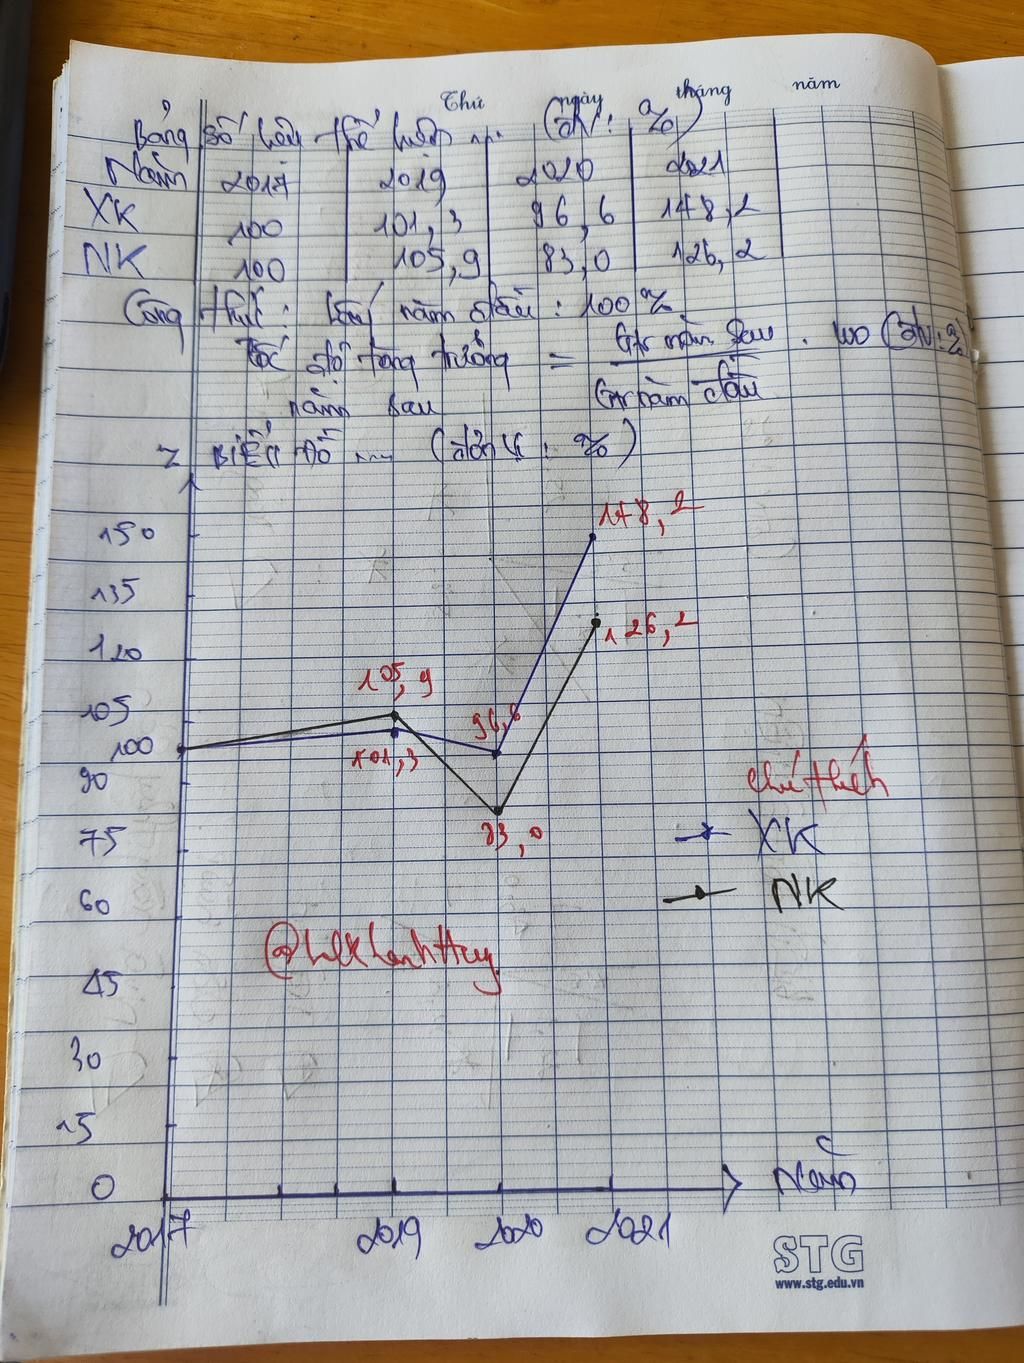 Thứ ngày tháng năm
Bảng số liệu thể hiện ... (đv: %)
Năm 2017 2019 2020 2021
XK 100 101,3 96,6 148,2
NK 100 105,9 83,0 126,2
Công thức: Lấy năm đầu: 100%
Tốc độ tăng trưởng = Gtr năm sau . 100 (đv: %)
năm sau Gtr năm đầu
Biểu đồ ... (đơn vị: %)
150
148,2
135
126,2
120
105,9
105
96,6
100
101,3
90
chú thích
75
83,0
XK
60
NK
45
30
15
0
Năm
2017 2019 2020 2021
STG
www.stg.edu.vn